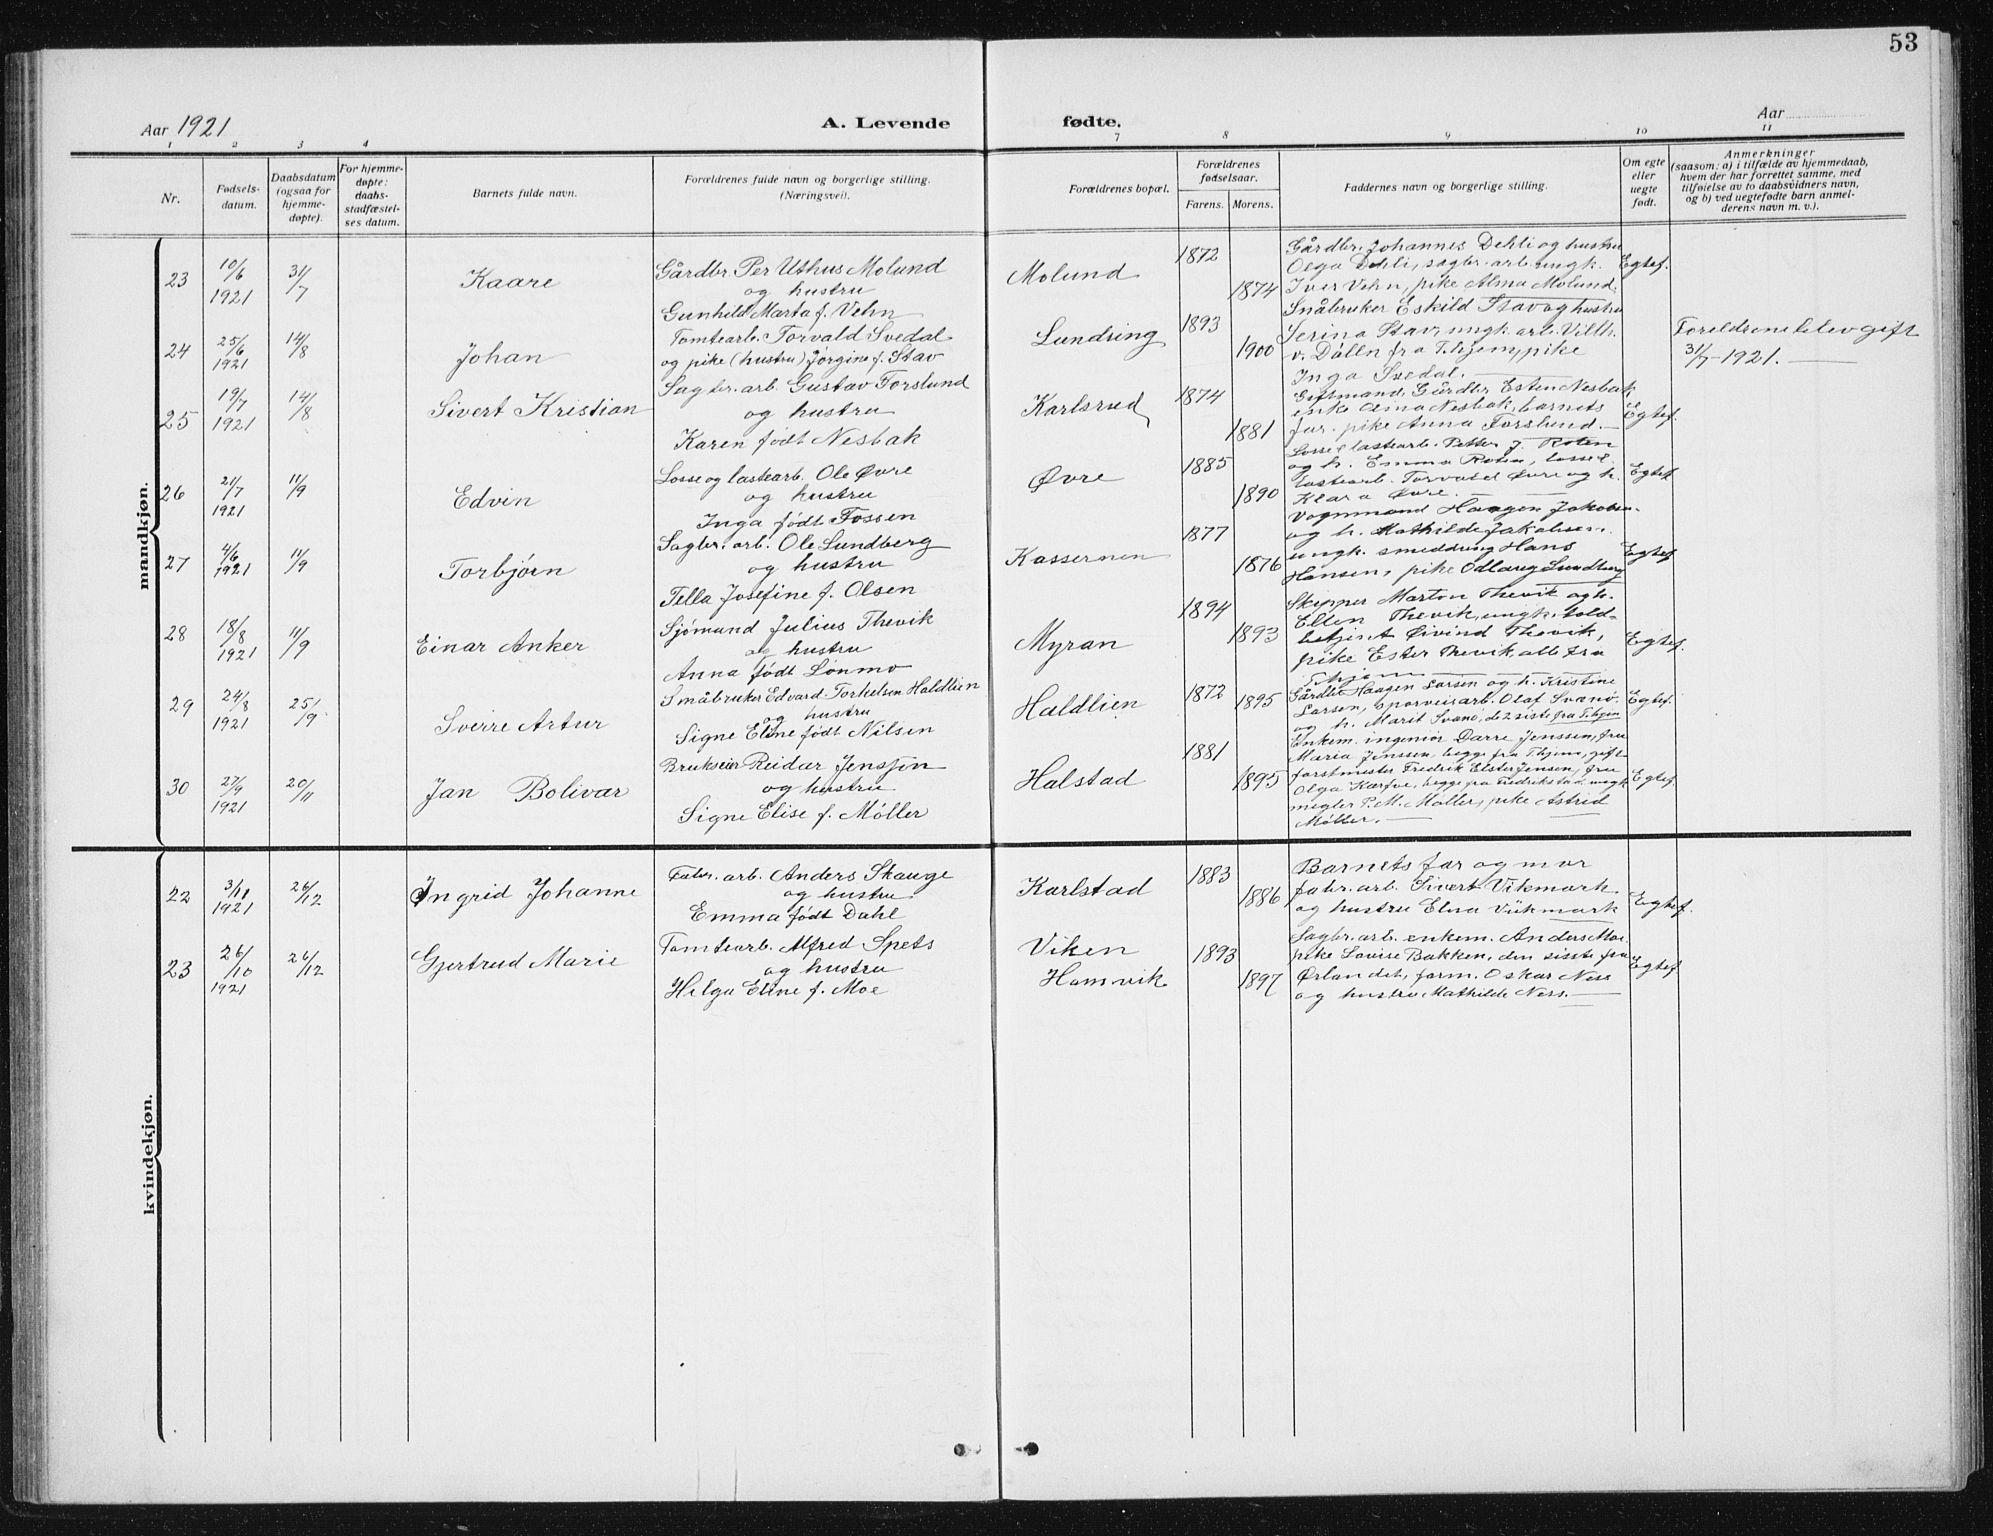 53
Aar 1921
A. Levende
fødte.
Aar
1 2 3 4 7 8 9 10 11
Nr.
Fødsels-
datum.
Daabsdatum
(ogsaa for
hjemme-
døpte).
For hjemme-
døpte:
daabs-
stadfæstel-
ses datum.
Barnets fulde navn.
Forældrenes fulde navn og borgerlige stilling.
(Næringsvei).
Forældrenes bopæl.
Forældrenes
fødselsaar.
Farens. Morens.
Faddernes navn og borgerlige stilling.
Om egte
eller
uegte
født.
Anmerkninger
(saasom: a) i tilfælde av hjemmedaab,
hvem der har forrettet samme, med
tilføielse av to daabsvidners navn,
og b) ved uegtefødte barn anmel-
derens navn m. v.).
mandkjøn.
23
10/6
1921
31/7
Kaare
Gårdbr. Per Uthus Molund
og hustru
Gunhild Marta f. Vehn
Molund
1872
1874
Gårdbr. Johannes Dehli og hustru
Olga Dehli, sagbr. arb. ungk.
Iver Vehn, pike Alma Molund.
Egtef.
24
25/6
1921
14/8
Johan
Tomtearb. Torvald Svedal
og pike (hustru) Jørgine f. Stav
Lundring
1893
1900
Småbruker Eskild Stav og hustru
Serina Stav, ungk. arb. Vilh.
v. Dålln fra T.hjem, pike
Inga Svedal.
Foreldrene blev gift
31/7-1921.
25
19/7
1921
14/8
Sivert Kristian
Sagbr. arb. Gustav Forslund
og hustru
Karen født Nesbak
Karlsrud
1874
1881
Giftmand, Gårdbr. Esten Nesbak,
enke Anna Nesbak, barnets
far, pike Anna Forslund.
Egtef.
26
21/7
1921
11/9
Edvin
Losse og lastearb. Ole Øvre
og hustru
Inga født Fossen
Øvre
1885
1890
Losse & lastearb. Petter J. Roten
og h. Emma Roten, losse &
lastearb. Torvald Øvre og h.
Klara Øvre.
Egtef.
27
4/6
1921
11/9
Torbjørn
Sagbr. arb. Ole Lundberg
og hustru
Tella Josefine f. Olsen
Kassernen
1877
1876
Vognmand Haagen Jakobsen
og h. Mathilde Jakobsen.
ungk. smeddreng Hans
Hansen, pike Odlaug Lundberg
Egtef.
28
18/8
1921
11/9
Einar Anker
Sjømand Julius Thevik
og hustru
Anna født Lønmo
Myran
1894
1893
Skipper Marton Thevik og h.
Ellen Thevik, ungk. told-
betjent Øivind Thevik,
pike Ester Thevik alle fra
T.hjem
Egtef.
29
24/8
1921
25/9
Sverre Artur
Småbruker Edvard Torkelsen Haldlien
og hustru
Signe Eline født Nilsen
Haldlien
1872
1895
Gårdbr. Haagen Larsen og h. Kristine
Larsen, sporveisarb. Olaf Svanø
og h. Marit Svanø, de 2 siste fra T.hjem
Egtef.
30
27/9
1921
20/11
Jan Bolivar
Brukseier Reidar Jenssen
og hustru
Signe Elise f. Møller
Halstad
1881
1895
Enkem. ingeniør Darre Jenssen, fru
Maria Jenssen, begge fra T.hjem, gift
forstmester Fredrik Elster Jensen, fru
Olga Kærfve, begge fra Fredrikstad, ungk.
megler P. M. Møller, pike Astrid
Møller.
Egtef.
kvindekjøn.
22
3/11
1921
26/12
Ingrid Johanne
Fabr. arb. Anders Skauge
og hustru
Emma født Dahl
Karlstad
1883
1886
Barnets far og mor
fabr. arb. Sivert Vikmark
og hustru Elna Vikmark
Egtef.
23
26/10
1921
26/12
Gjertrud Marie
Tomtearb. Alfred Spets
og hustru
Helga Eline f. Moe
Viken
Hamvik
1893
1897
Sagbr. arb. enkem. Anders Moe.
pike Lovise Bakken, den sisste fra
Ørlandet, form. Oskar Ness
og hustru Mathilde Ness.
Egtef.